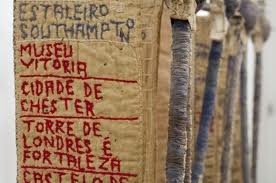 ESTALEIRO
SOUTHAMPTNº
MUSEU
VITÓRIA
CIDADE DE
CHESTER
TORRE DE
LONDRES É
FORTALEZA
CASTELO DE